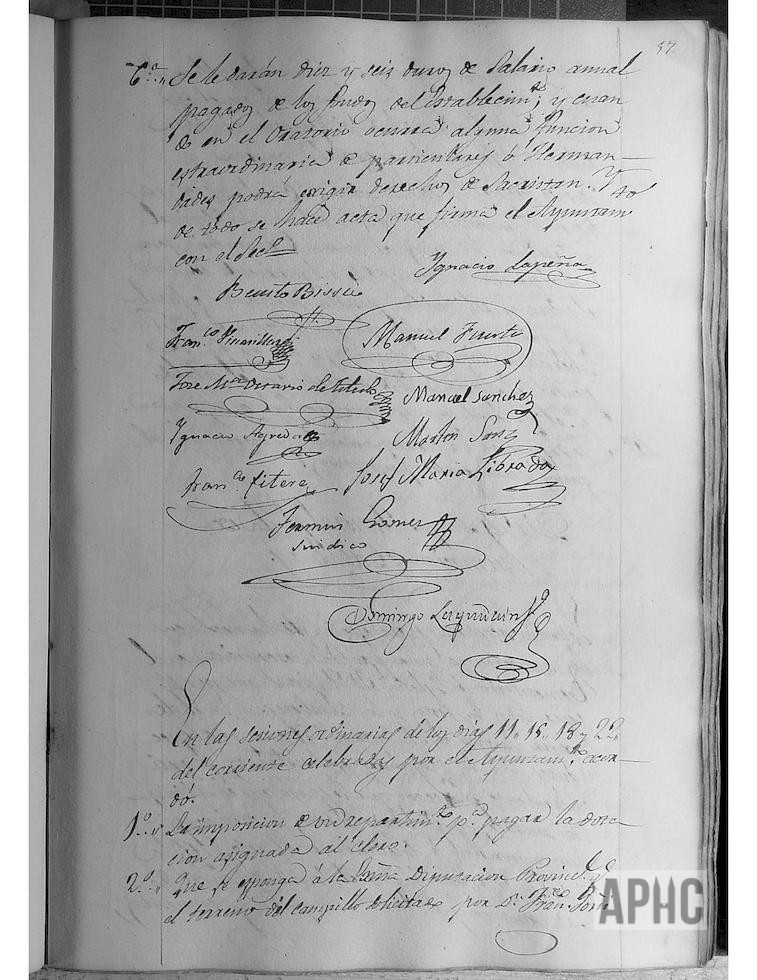 57.
6.ª „ Se le darán diez y seis duros de Salario annal
pagados de los fondos del Establecim.to, y cuan
do en el Oratorio ocurra alguna funcion
extraordinaria de particulares ó Herman
dades podra exigir derechos de Sacristan. Y
de todo se hace acta que firma el Ayuntam.to
con el Sec.o
Ygnacio Lapeña
Benito
Fran.co
Manuel Fuerte
Jose M.a
Manuel Sanchez
Ygnacio Agreda
Martin Sanz
Fran.co Fitero
Josef Maria Librados
Fermin Gomez
Sindico
Domingo
En las sesiones ordinarias de los dias 11. 15. 18 y 22.
del corriente celebradas por el Ayuntam.to acor
dó.
1.º „ La imposicion de un repartim.to p.a pagar la dota
cion asignada al clero.
2.º „ Que se esponga á la Exma Diputacion Provinc.l q.e
el terreno del Campillo solicitado por D. Fran.co
APHC